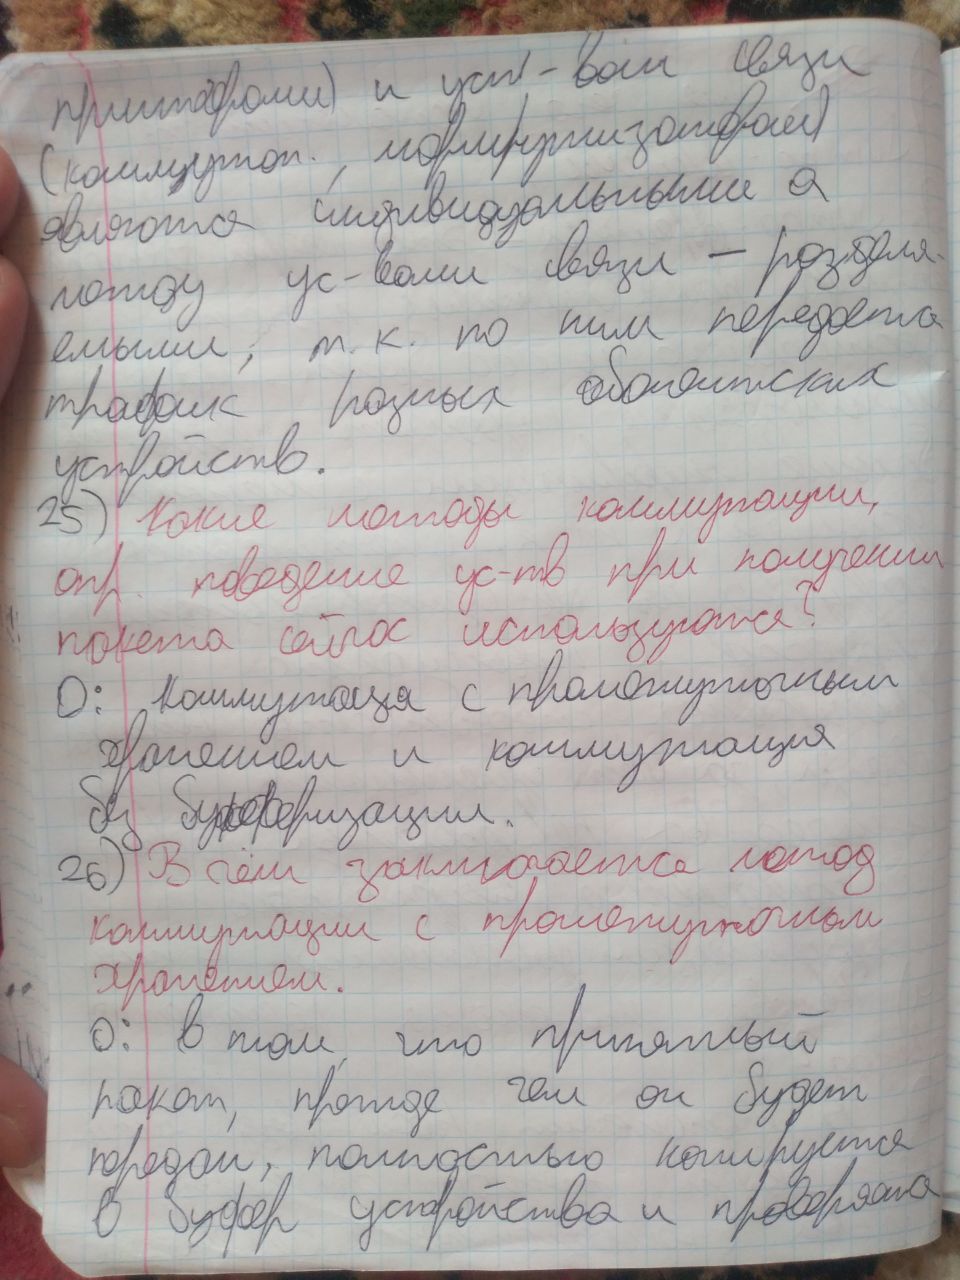 принтером) и уст-вом связи
(коммутат., маршрутизатором)
являются индивидуальными а
между ус-вами связи – разделя-
емыми, т.к. по ним передается
трафик разных абонентских
устройств.
25) Какие методы коммутации,
опр. поведение ус-тв при получении
пакета сейчас используются?
О: Коммутация с промежуточным
хранением и коммутация
без буферизации.
26) В чём заключается метод
коммутации с промежуточном
хранением.
О: в том, что принятый
пакет, прежде чем он будет
передан, полностью копируется
в буфер устройства и проверяется